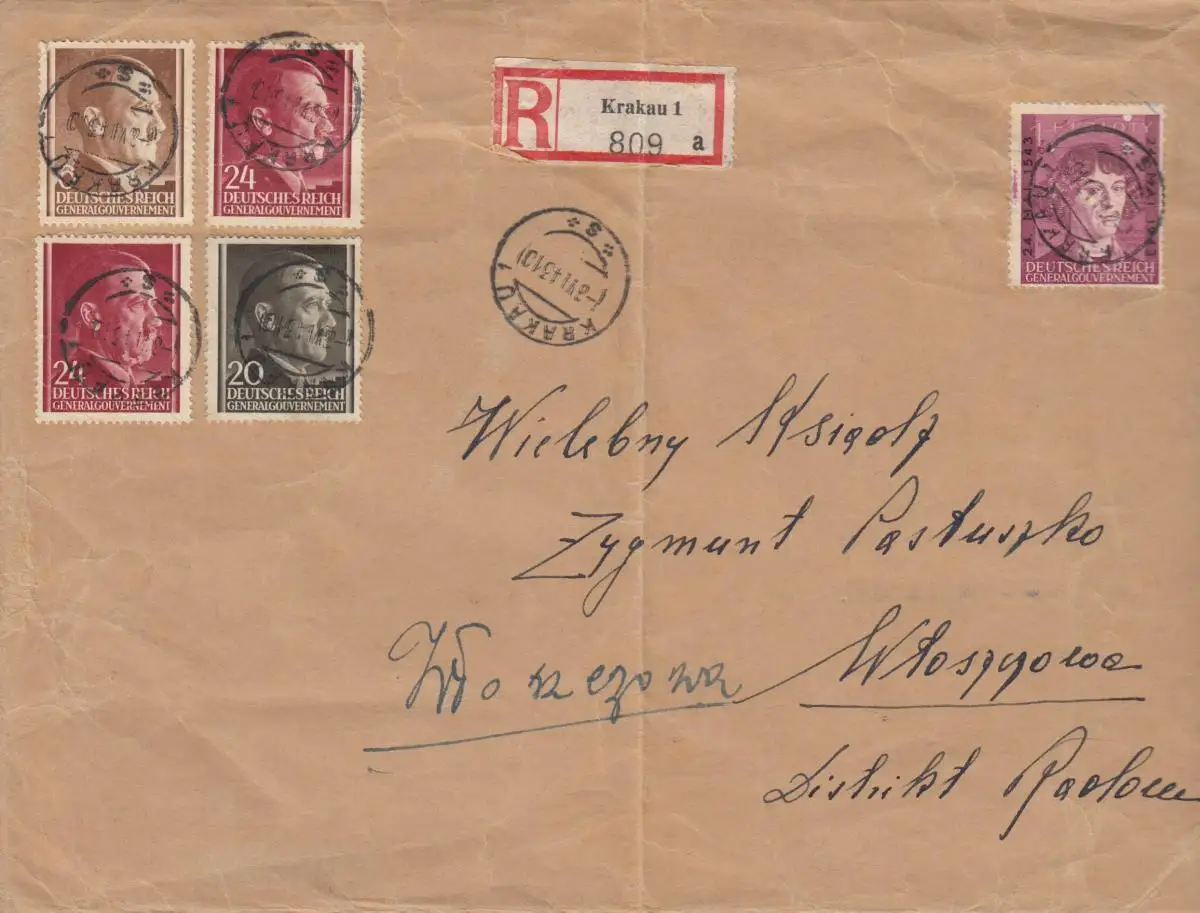 6
DEUTSCHES REICH
GENERALGOUVERNEMENT
24
DEUTSCHES REICH
GENERALGOUVERNEMENT
24
DEUTSCHES REICH
GENERALGOUVERNEMENT
20
DEUTSCHES REICH
GENERALGOUVERNEMENT
R
Krakau 1
809 a
KRAKAU 1
24. MAI 1543
24. MAI 1943
DEUTSCHES REICH
GENERALGOUVERNEMENT
Wielebny Ksiądz
Zygmunt Pastuszko
Włoszczowa
Włoszczowa
Distrikt Radom